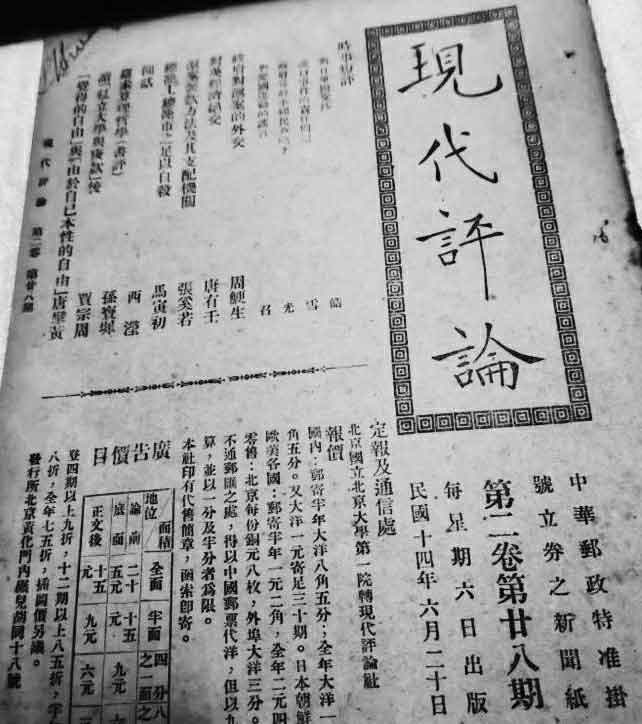 現代評論
中華郵政特准掛
號立券之新聞紙
第二卷第廿八期
每星期六日出版
民國十四年六月二十日
時事短評
皓
雪
光
召
終府對滬案的外交
周鯁生
對英經濟絕交
唐有壬
張奚若
總罷工總罷市二足以自殺
馬寅初
閒話
西瀅
孫寶墀
賈宗周
「覺得的自由」與「由於自己本性的自由」
唐擘黃
現代評論 第二卷 第廿八期
定報及通信處
北京國立北京大學第一院轉現代評論社
報價
國內:郵寄半年大洋八角五分;全年大洋一
角五分。又大洋一元寄足三十期。日本朝鮮
歐美各國:郵寄半年一元二角,全年二元四
零售:北京每份銅元八枚,外埠大洋三分。
不通郵匯之處,得以中國郵票代洋,但以九
算,並以一分及半分者為限。
本社印有代售簡章,函索即寄。
廣告價目
地位 面積 全面 半面 四分之一面
論前 二十元 十五元 九元
底面
正文後 十五元 九元 六元
登四期以上九折,十二期以上八五折,半
八折,全年七五折,插圖價另議。
發行所北京黃化門內簾兒胡同十八號